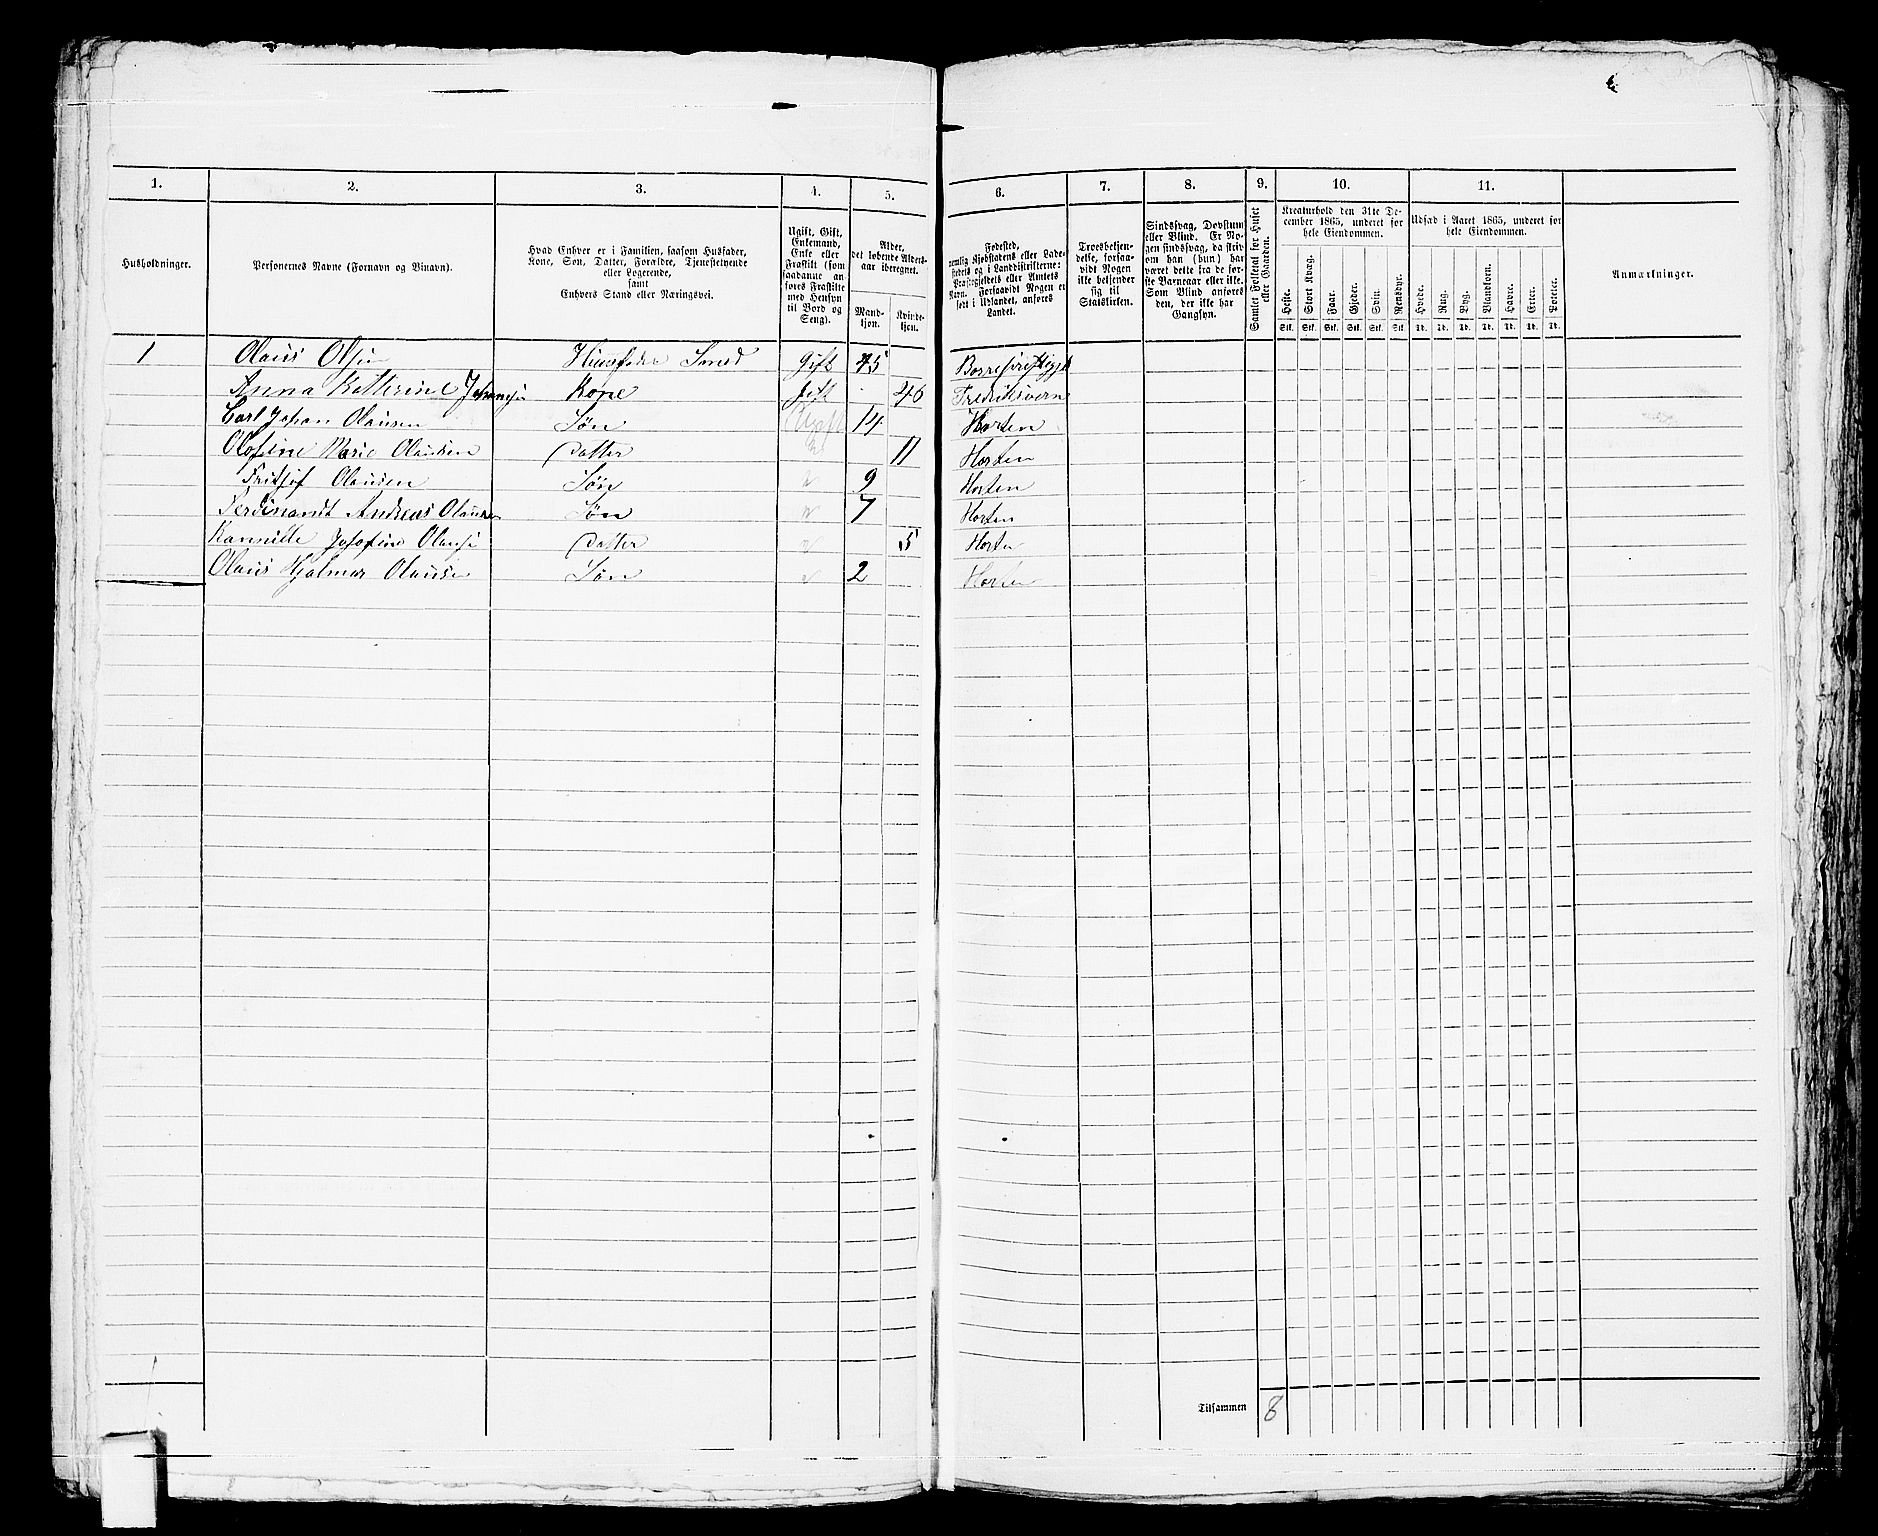 1. 2. 3. 4. 5. 6. 7. 8. 9. 10. 11.
Husholdninger.
Personernes Navne (Fornavn og Binavn).
Hvad Enhver er i Familien, saasom Husfader,
Kone, Søn, Datter, Forældre, Tjenestetyende
eller Logerende,
samt
Enhvers Stand eller Næringsvei.
Ugift, Gift,
Enkemand,
Enke eller
Fraskilt (som
saadanne an-
føres Fraskilte
med Hensyn
til Bord og
Seng).
Alder,
det løbende Alders-
aar iberegnet.
Mand-
kjøn.
Kvinde-
kjøn.
Fødested,
nemlig Kjøbstadens eller Lade-
stedets og i Landdistrikterne:
Præstegjeldets eller Amtets
Navn. Forsaavidt Nogen er
født i Udlandet, anføres
Landet.
Troesbekjen-
delse, forsaa-
vidt Nogen
ikke bekjender
sig til
Statskirken.
Sindssvag, Døvstum
eller Blind. Er No-
gen sindssvag, da skriv
om han (hun) har
været dette fra de før-
ste Barneaar eller ikke.
Som Blind anføres
den, der ikke har
Gangsyn.
Gamlet Folketal for Huset
eller Gaarden.
Kreaturhold den 31te De-
cember 1865, underet for
hele Eiendommen.
Heste. Stort Kvæg. Faar. Gjeder. Svin. Rensdyr.
Stk. Stk. Stk. Stk. Stk. Stk.
Udsæd i Aaret 1865, underet for
hele Eiendommen.
Hvede. Rug. Byg. Blandkorn. Havre. Erter. Poteter.
Td. Td. Td. Td. Td. Td. Td.
Anmærkninger.
1 Olaus Olsen Huusfader Smed Gift 45 Borre
Anna Katherine Kone Gift 46 Fredriksværn
Carl Johan Olausen Søn Ugift 14 Horten
Olufine Marie Olausen Datter 11 Horten
Fritjof Olausen Søn 9 Horten
Ferdinandt Andreas Olausen Søn 7 Horten
Kamille Josofine Olausen Datter 5 Horten
Olaus Hjalmar Olausen Søn 2 Horten
Tilsammen 8